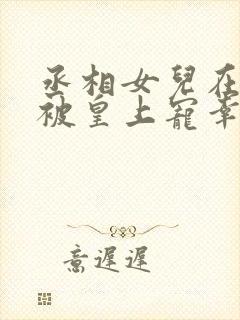 丞相女兒在
被皇上寵幸
意遲遲